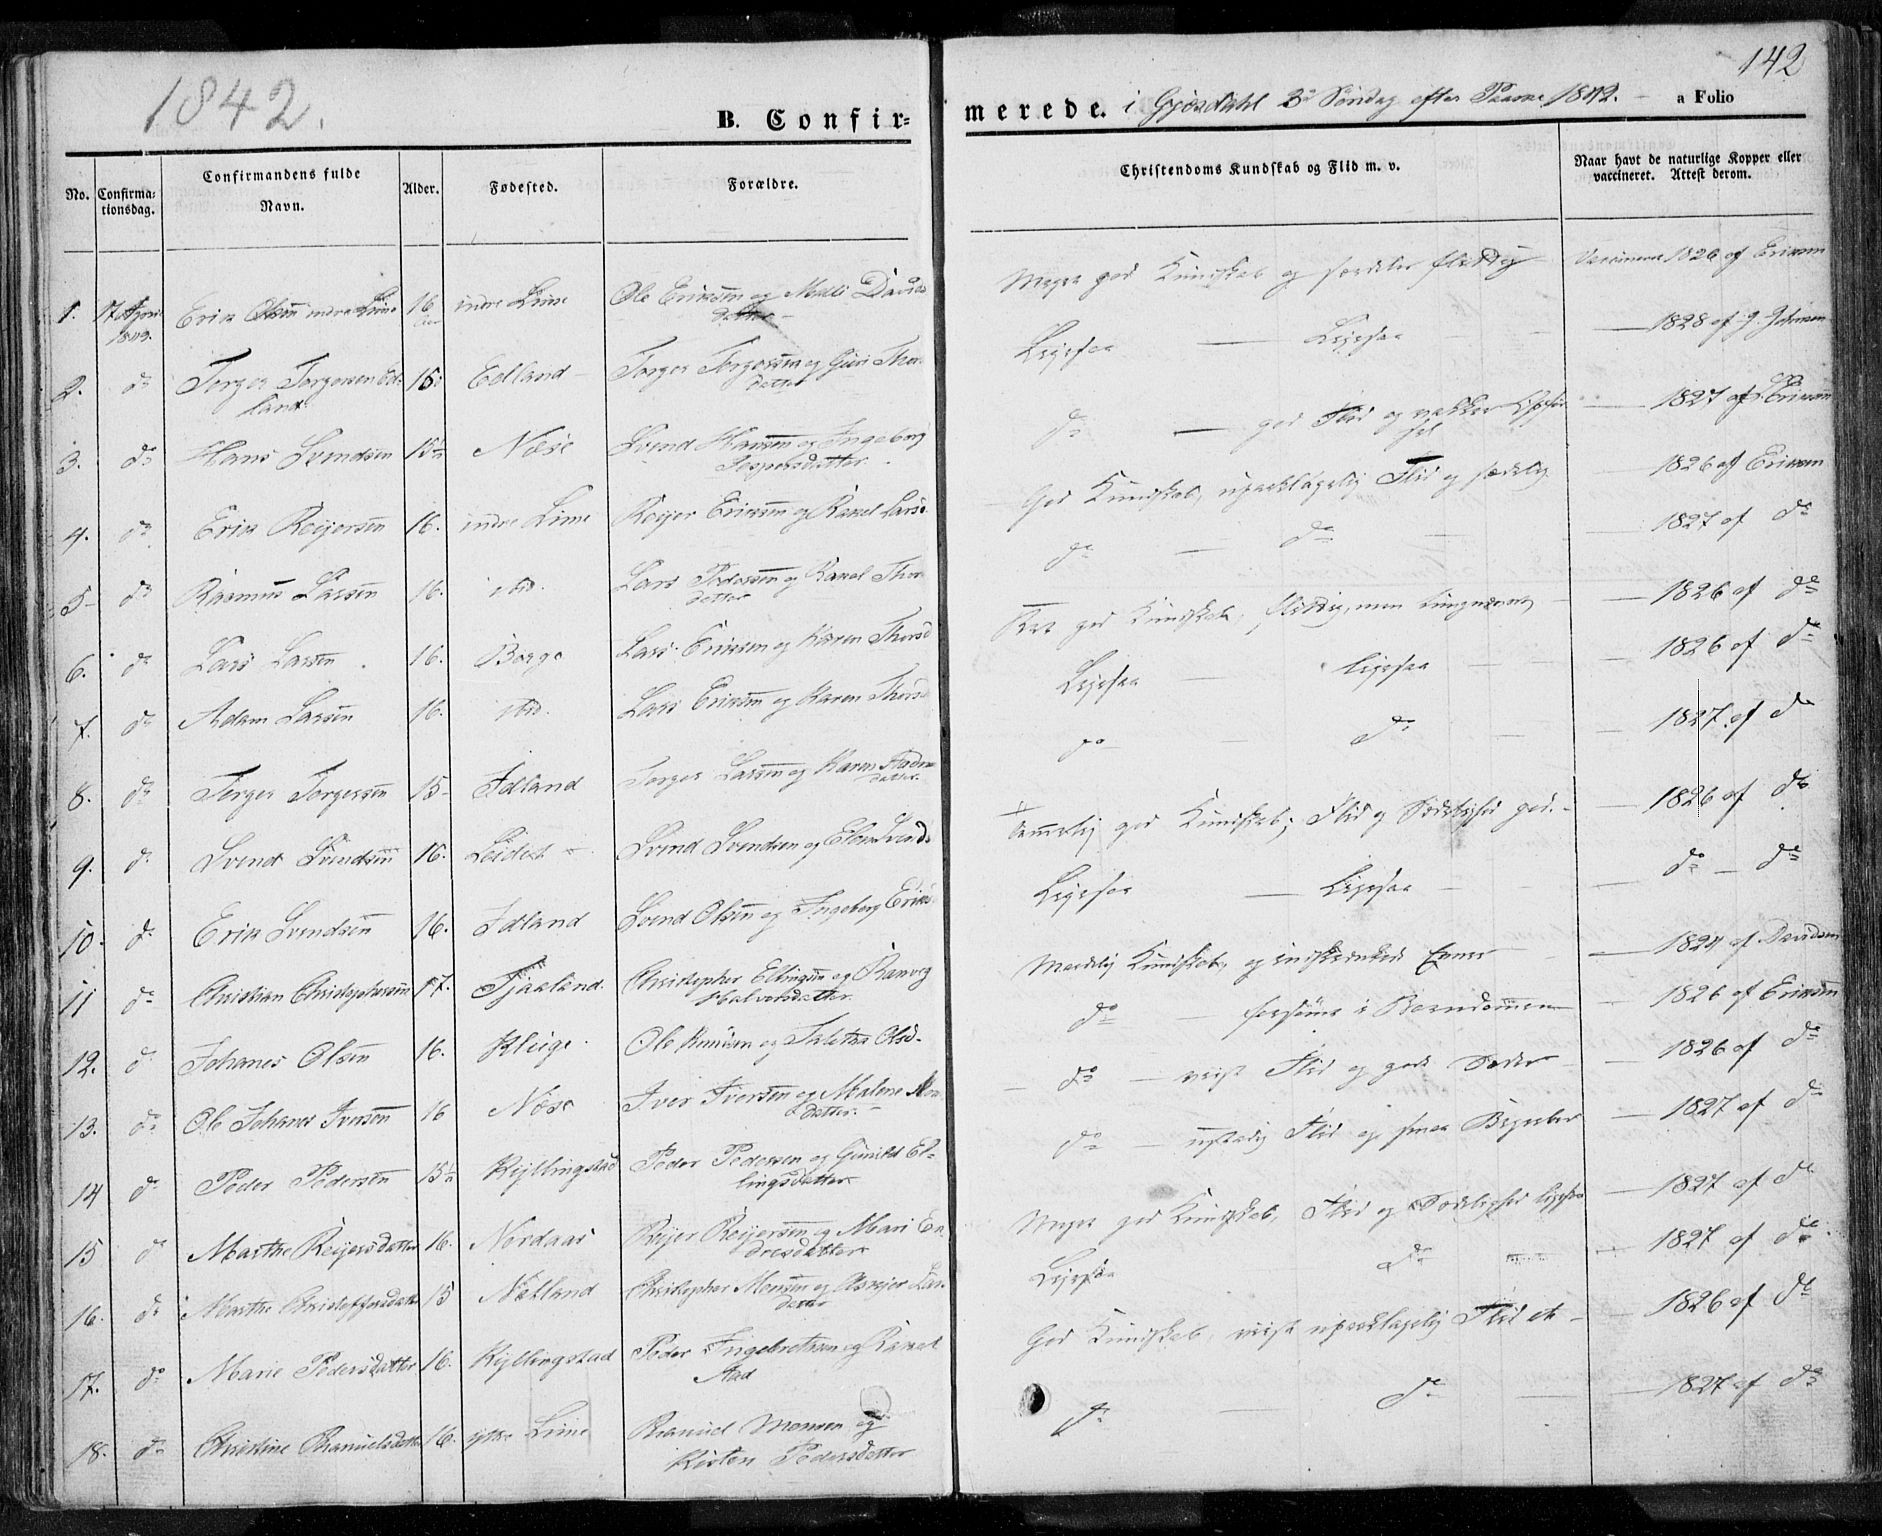 142
1842.
B. Confirmerede. i Gjesdahl 3die Søndag efter Paaske 1842. a Folio
No. Confirmationsdag. Confirmandens fulde Navn. Alder. Fødested. Forældre. Christendoms Kundskab og Flid m. v. Naar havt de naturlige Kopper eller vaccineret. Attest derom.
1. 17 April Erik Olsen indre Lime 16 indre Lime Ole Eriksen og Malli Davids datter Meget god Kundskab og særdeles flittig Vaccineret 1826 af Eriksen
2. do Torger Torgersen Edland 15 Edland Torger Torgersen og Guri Thordatter Ligesaa — Ligesaa — 1828 af J. Johnsen
3. do Hans Svendsen 15½ Næse Svend Hansen og Ingeborg Jespersdatter do — god Flid og vakker — 1827 af Eriksen
4. do Erik Reijersen 16. indre Lime Reijer Eriksen og Rakel Larsd God Kundskab, upaaklagelig Flid og sædelig — 1826 af Eriksen
5 do Rasmus Larsen 16. ibid. Lars Pedersen og Rakel Thordatter do — do — 1827 af do
6. do Lars Larsen 16. Borge Lars Eriksen og Karen Thorsd god Kundskab, flittig, men — 1826 af do
7. do Adam Larsen 16. ibid. Lars Eriksen og Karen Thorsd Ligesaa — ligesaa — 1826 af do
8. do Torger Torgersen 15 Idland Torger Larsen og Karen datter. do do — 1827 af do
9. do Svend Svendsen 16. Svend Svendsen og Elen Svends Temmelig god Kundskab; Flid og Sædelighed god. — 1826 af do
10. do Erik Svendsen 16. Idland Svend Olsen og Ingeborg Eriks Ligesaa — Ligesaa — do — do
11 do Christian Christophersen 17. Tjaaland. Christopher Ellingsen og Ranveg Halvorsdatter Maadelig Kundskab, og indskrænkede Evner — 1824 af Davidsen
12. do Johanes Olsen 16. Kleige. Ole Knudsen og Talette Olsd. do — forsømt i Barndommen — 1826 af Eriksen
13. do Ole Johanes Iversen 16 Næse Iver Iversen og Malene datter. do — viist Flid og gode Sæder — 1826 af do
14 do Peder Pedersen 15½ Kyllingstad Peder Pedersen og Gunild Ellingsdatter do — ustadig Flid og smaa Begreber — 1827 af do
15 do Marthe Reijersdatter 16. Nordaas Reijer Reijersen og Mari Endresdatter Meget god Kundskab, Flid og Sædelighed ligesaa — 1827 af do
16. do Marthe Christoffersdatter 15 Nætland Christopher Monsen og Larsdatter Ligesaa do — 1827 af do
17. do Marie Pedersdatter 16. Kyllingstad Peder Ingebretsen og Rakel God Kundskab, viist upaaklagelig Flid etc — 1826 af do
18. do Christine Ramuelsdatter 16. ytre Lime Ramuel Monsen og Kirsten Pedersdatter do — do — 1827 af do